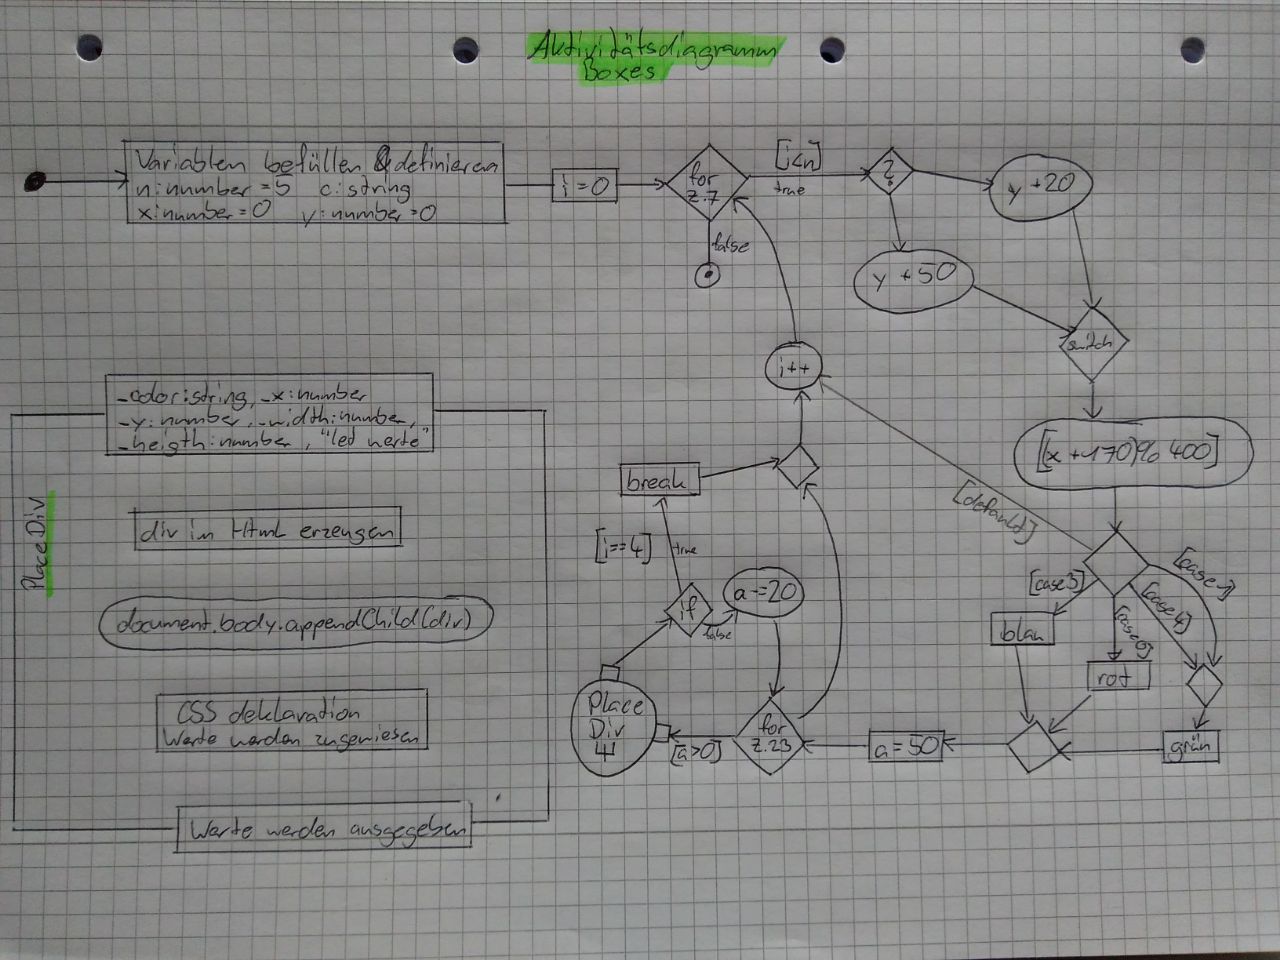 Aktivitätsdiagramm
Boxes
Variablen befüllen & definieren
n:number =5 c:string
x:number=0 y:number=0
i=0
for
z.7
[i<n]
true
false
?
y +20
y +50
switch
[(x +170)% 400]
i++
[default]
[case 3]
[case 0]
[case 4]
[case 1]
blau
rot
grün
a=50
for
z.23
[a>0]
Place
Div
if
false
a-=20
[i==4]
true
break
Place Div
_color:string, _x:number
_y:number, _width:number,
_heigth:number, "let werte"
div im Html erzeugen
document.body.appendChild(div)
CSS deklaration
Werte werden zugewiesen
Werte werden ausgegeben